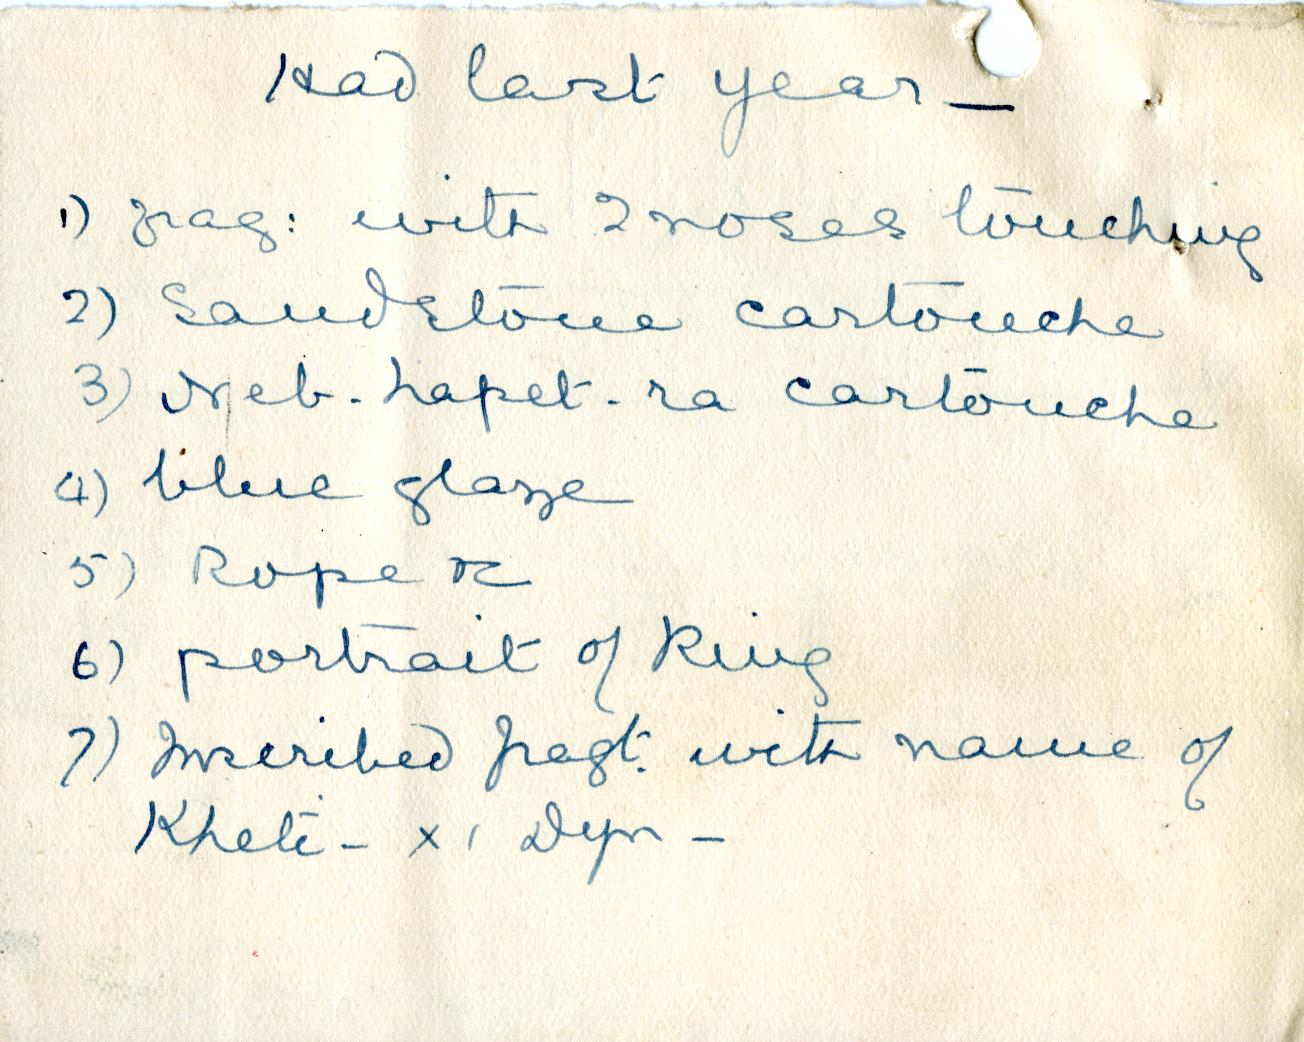 Had last year —
1) frag: with 2 noses touching
2) Sandstone cartouche
3) Neb-hapet-ra cartouche
4) blue glaze
5) Rope &c
6) portrait of King
7) Inscribed fragt. with name of
Kheti - XI Dyn -